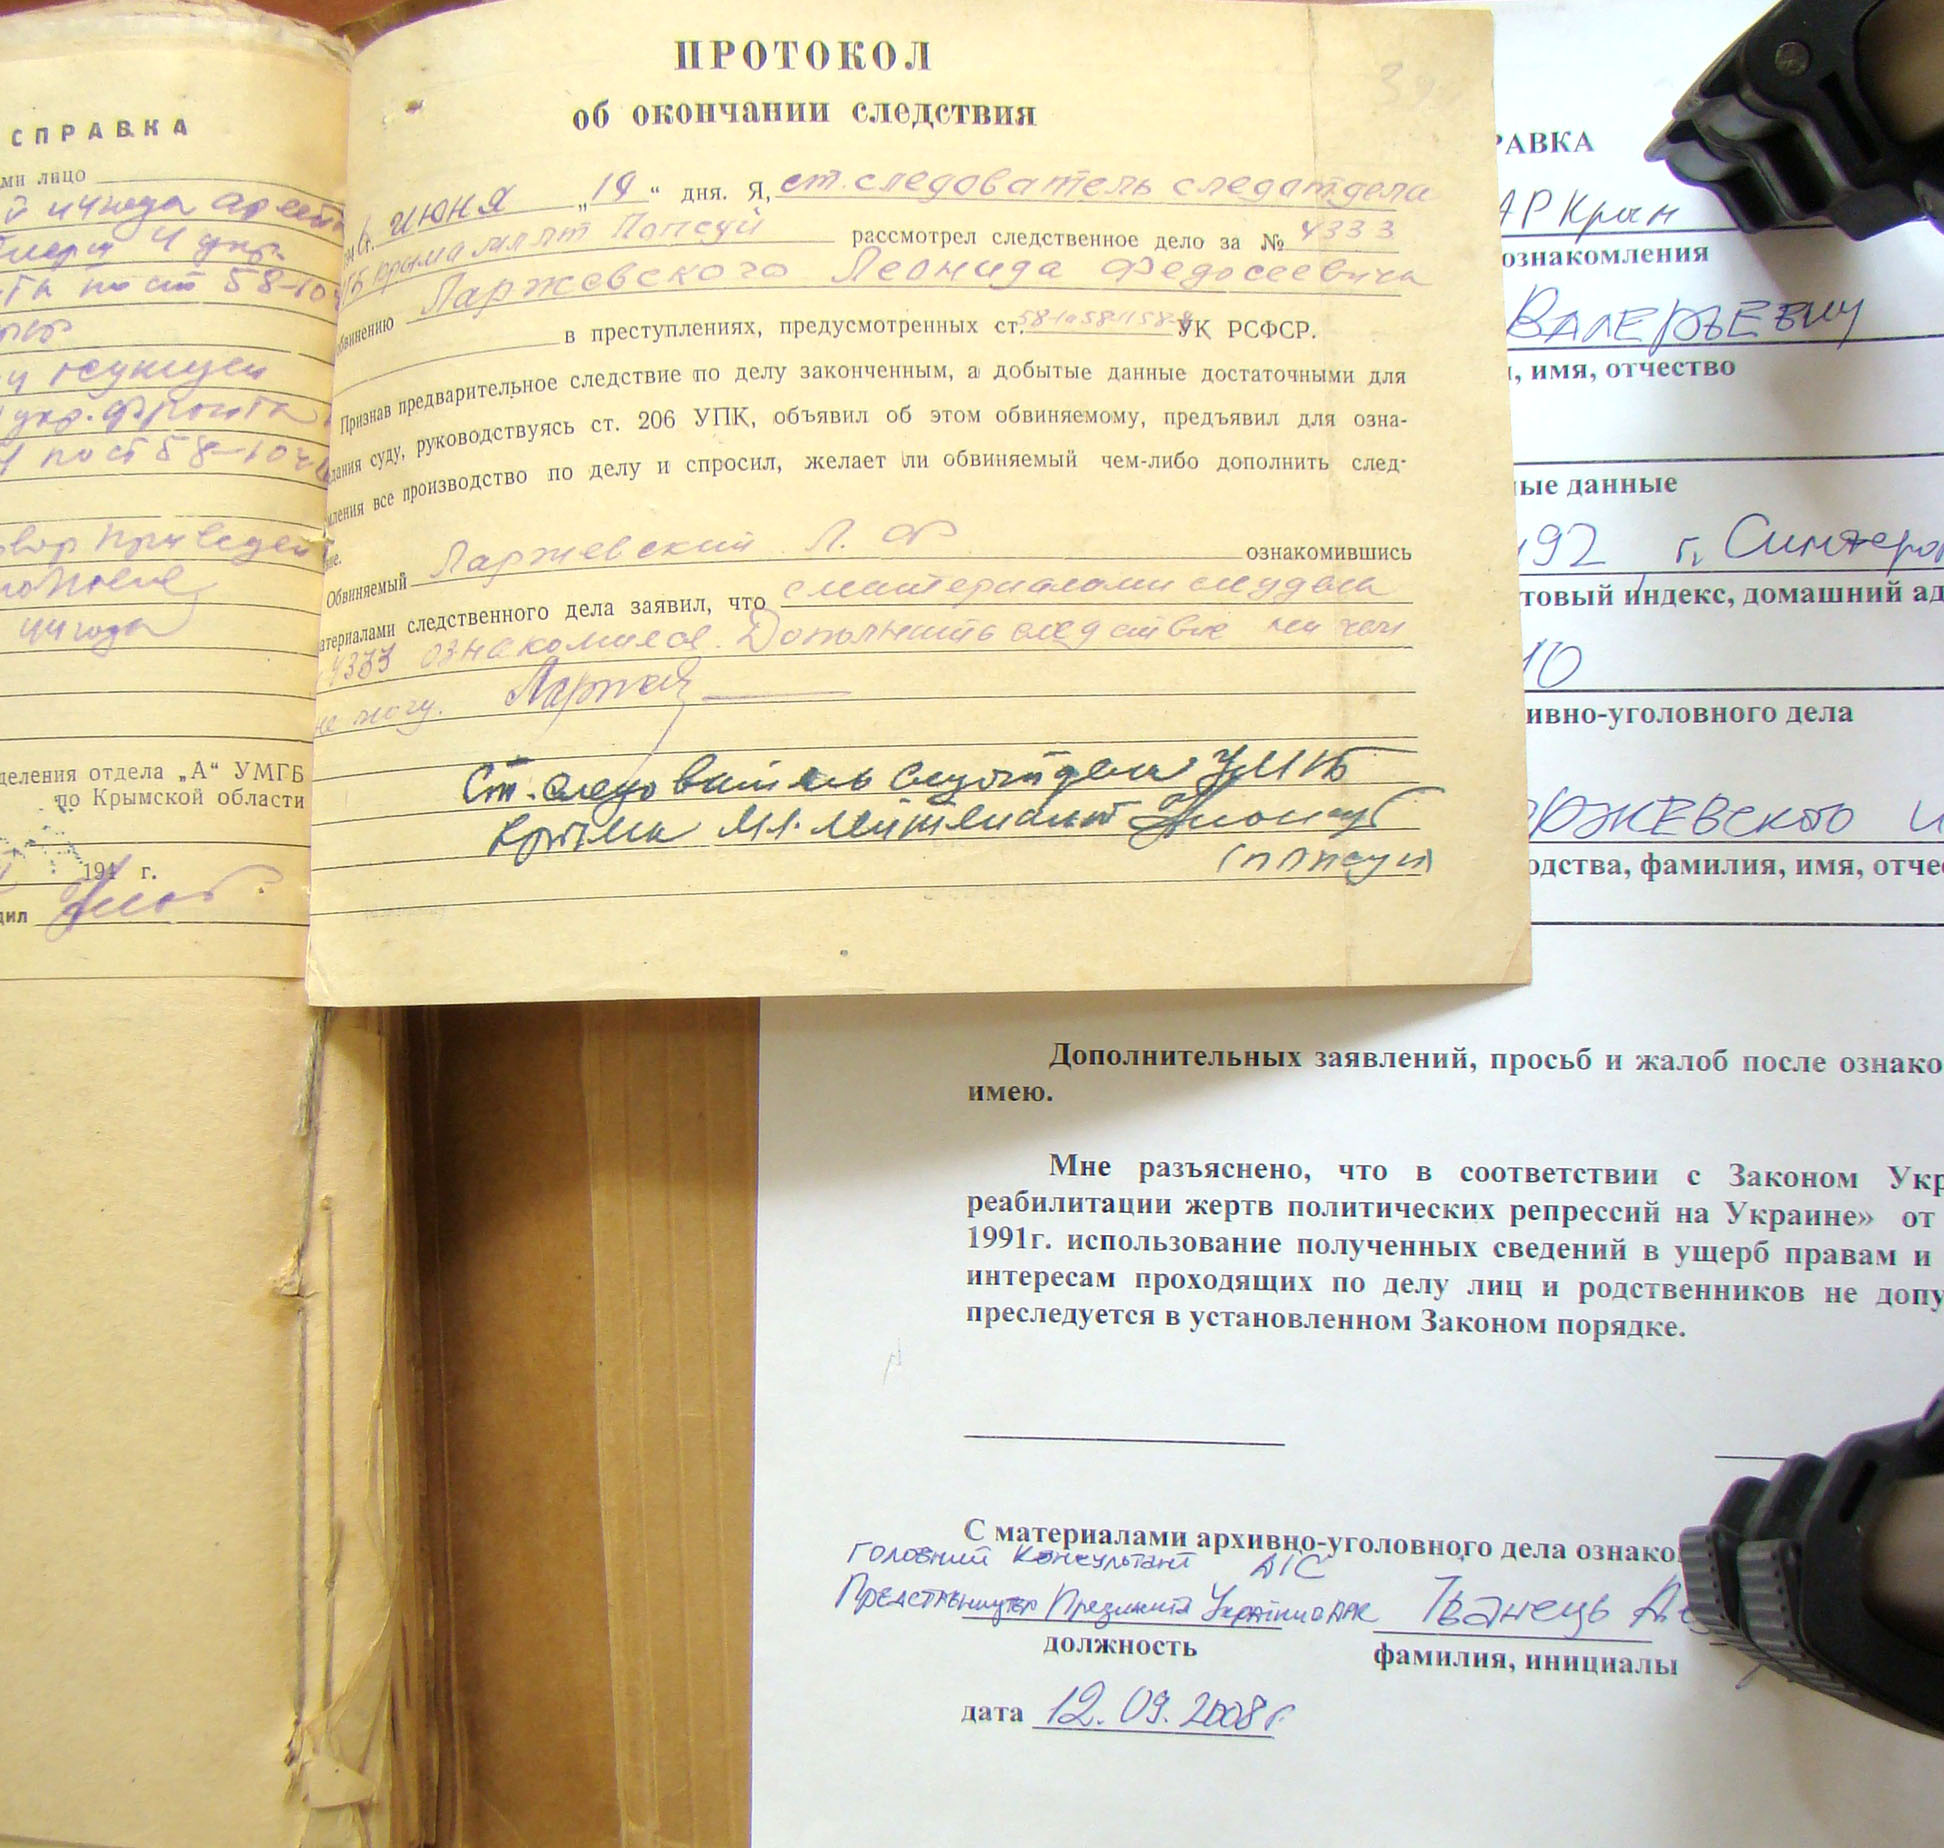 СПРАВКА
ми лицо
пост 58-10
44 года
деления отдела „А“ УМГБ
по Крымской области
194 г.
дил
ПРОТОКОЛ
об окончании следствия
194 6 г. июня „19“ дня. Я, ст. следователь следотдела
ГБ Крыма мл л-т Попсуй рассмотрел следственное дело за № 4333
обвинению Ларжевского Леонида Федосеевича
в преступлениях, предусмотренных ст. 58-1а 58-11 58-8 УК РСФСР.
Признав предварительное следствие по делу законченным, а добытые данные достаточными для
дания суду, руководствуясь ст. 206 УПК, объявил об этом обвиняемому, предъявил для озна-
мления все производство по делу и спросил, желает ли обвиняемый чем-либо дополнить след-
вие.
Обвиняемый Ларжевский Л. Ф. ознакомившись
атериалами следственного дела заявил, что с материалами след дела
4333 ознакомился. Дополнить следствие ни чем
не могу.
Ст. следователь следотдела УМГБ
Крыма мл. лейтенант
(Попсуй)
РАВКА
АР Крым
ознакомления
Валерьевичу
, имя, отчество
ные данные
192 г. Симферо
товый индекс, домашний ад
10
ивно-уголовного дела
оржевского
одства, фамилия, имя, отче
Дополнительных заявлений, просьб и жалоб после ознако
имею.
Мне разъяснено, что в соответствии с Законом Укр
реабилитации жертв политических репрессий на Украине» от
1991г. использование полученных сведений в ущерб правам и
интересам проходящих по делу лиц и родственников не допу
преследуется в установленном Законом порядке.
С материалами архивно-уголовного дела ознако
Головний консультант ДІС
Представництва Президента України в АРК Іванець А
должность
фамилия, инициалы
дата 12.09.2008 г.